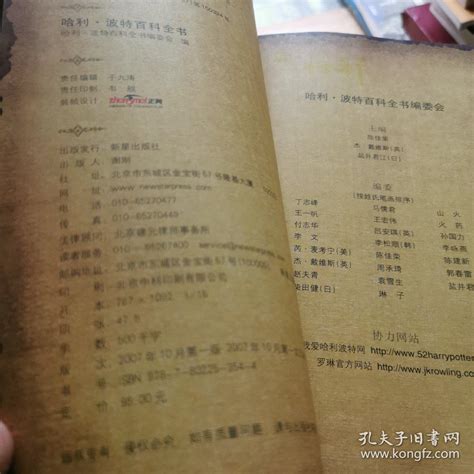 哈利·波特百科全书
哈利·波特百科全书编委会 编
责任编辑 于九涛
责任印制 韦舰
装帧设计 正网
出版发行 新星出版社
出版人 谢刚
社址 北京市东城区金宝街67号隆基大厦
网址 www.newstarpress.com
电话 010-65270477
传真 010-65270449
法律顾问 北京建元律师事务所
读者服务 010-65267400 service@newstarpress.com
邮购地址 北京市东城区金宝街67号
印刷 北京中科印刷有限公司
开本 787×1092 1/16
印张 47.5
字数 800千字
版次 2007年10月第一版 2007年10月第一
书号 ISBN 978-7-80225-354-4
定价 98.00元
版权专有 侵权必究 如有质量问题
哈利·波特百科全书编委会
主编
陈佳集
杰·戴维斯(英)
编委
(按姓氏笔画排序)
丁志峰 马儒君 山火
王一帆 王宏伟 火药
付志华 吕安琪(英) 孙国力
李文 李松顺(韩) 李咏燕
芮·麦考宁(美) 陈佳荣 陈建新
杰·戴维斯(英) 周承琦 郭春雷
赵夫青 袁雪生
柴田健(日) 琳子
协力网站
我爱哈利波特网 http://www.52harrypotter
罗琳官方网站 http://www.jkrowling.com/
孔夫子旧书网
www.kongfz.com